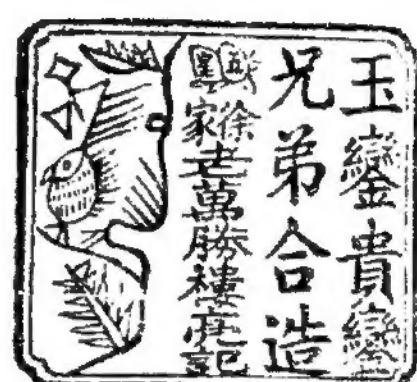 玉鑾貴鑾
兄弟合造
徐家
老萬勝樓 記